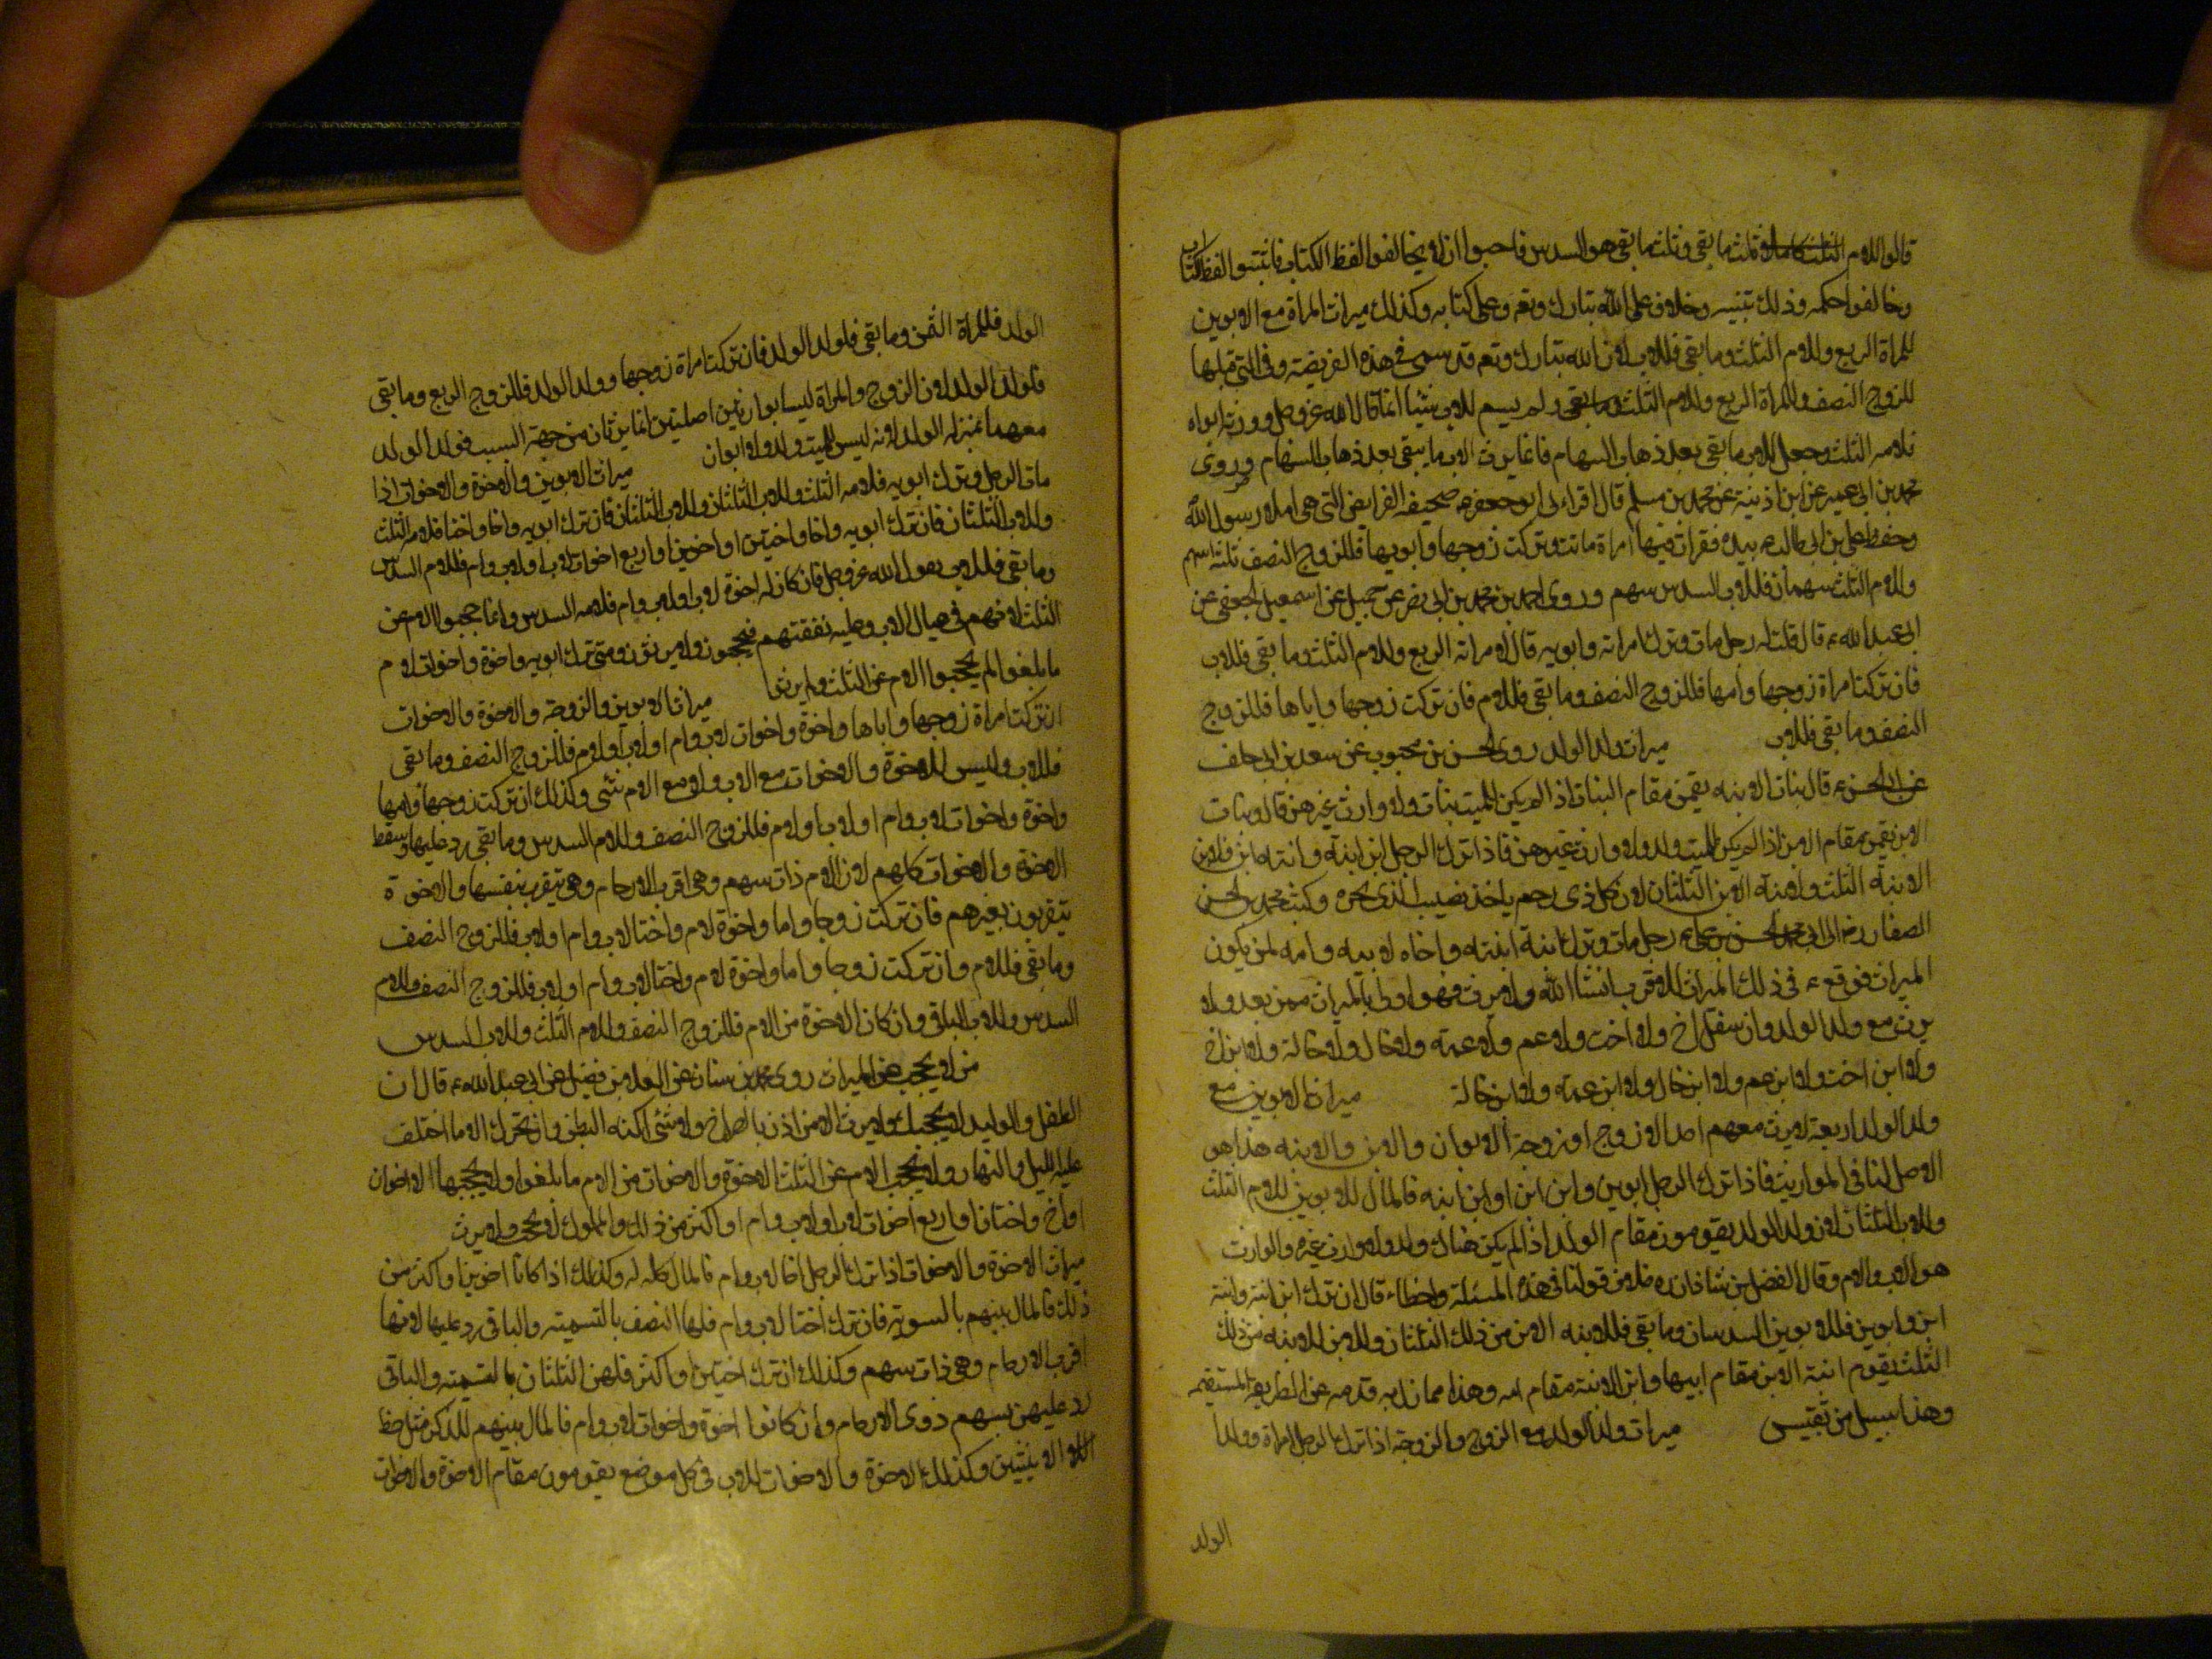 قالوا للام الثلث كاملا وثلث ما بقى وثلث ما بقى هو السدس فاحبوا ان لا يخالفوا لفظ الكتاب فاثبتوا لفظ الكتاب
وخالفوا حكمه وذلك وخلاف على الله تبارك وتع وعلى كتابه وكذلك ميراث المراة مع الابوين
للمراة الربع وللام الثلث وما بقى فللاب لان الله تبارك وتع قد سمى فى هذه الفريضة وفى التى قبلها
للزوج النصف وللمراة الربع وللام الثلث وما بقى ولم يسم للاب شيئا انما قال الله عزوجل وورثه ابواه
فلامه الثلث وجعل للاب ما بقى بعد ذهاب السهام فانما يرث الاب ما يبقى بعد ذهاب السهام وروى
محمد بن ابى عمير عن ابن اذينة عن محمد بن مسلم قال اقراء لى ابو جعفر ع صحيفة الفرايض التى هى املاء رسول الله
وخط على بن ابى طالب ع بيده فقرات فيها امراة ماتت وتركت زوجها وابويها فللزوج النصف ثلثة اسهم
وللام الثلث سهمان وللاب السدس سهم وروى احمد بن محمد بن ابى نصر عن جميل عن اسمعيل الجعفى عن
ابى عبد الله ع قال قلت له رجل مات وترك امراته وابويه قال لامراته الربع وللام الثلث وما بقى فللاب
فان تركت امراة زوجها وامها فللزوج النصف وما بقى فللام فان تركت زوجها واباها فللزوج
النصف وما بقى فللاب ميراث ولد الولد روى الحسن بن محبوب عن سعد بن ابى خلف
عن ابى الحسن ع قال بنات الابنه يقمن مقام البنات اذا لم يكن للميت بنات ولا وارث غيرهن قال وبنات
الابن يقمن مقام الابن اذا لم يكن للميت ولد ولا وارث غيرهن فاذا ترك الرجل ابن ابنة وابنة ابن فلابن
الابنة الثلث ولابنة الابن الثلثان لان كل ذى رحم ياخذ نصيب الذى يجره وكتب محمد بن الحسن
الصفار رض الى ابى محمد الحسن بن على ع رجل مات وترك ابنة ابنته واخاه لابيه وامه لمن يكون
الميراث فوقع ع فى ذلك الميراث للاقرب انشا الله ولا يرث فهو اولى بالميراث ممن بعد ولا
يرث مع ولد الولد وان سفل اخ ولا اخت ولا عم ولا عمة ولا خال ولا خالة ولا ابن اخ
ولا ابن اخت ولا ابن عم ولا ابن خال ولا ابن عمة ولا ابن خالة ميراث الابوين مع
ولد الولد اربعة لا يرث معهم احد الا زوج او زوجة الابوان والابن والابنه هذا هو
الاصل لنا فى المواريث فاذا ترك الرجل ابوين وابن ابن او ابن ابنه فالمال للابوين للام الثلث
وللاب الثلثان لان ولد الولد يقومون مقام الولد اذا لم يكن هناك ولد ولا وارث غيره والوارث
هو الاب والام وقال الفضل بن شاذان ره خلاف قولنا فى هذه المسئلة واخطاء قال ان ترك ابن ابنة وابنة
ابن وابوين فللابوين السدسان وما بقى فللابنه الابن من ذلك الثلثان وللابن الابنه من ذلك
الثلث تقوم ابنة الابن مقام ابيها وابن الابنة مقام امه وهذا مما زل به قدمه عن الطريقة المستقيمة
وهذا سبيل من يقيس ميراث ولد الولد مع الزوج والزوجة اذا ترك الرجل امراة وولد
الولد
الولد فللمراة الثمن وما بقى فلولد الولد فان تركت امراة زوجها وولد الولد فللزوج الربع وما بقى
فلولد الولد لان الزوج والمراة ليسا بوارثين اصليين انما يرثان من جهة السبب فولد الولد
معهما بمنزلة الولد لانه ليس للميت ولد ولا ابوان ميراث الابوين والاخوة والاخوات اذا
مات الرجل وترك ابويه فلامه الثلث وللاب الثلثان وللاب الثلثان فان ترك ابويه واخا واختا فلامه الثلث
وللاب الثلثان فان ترك ابويه واخا واختين او اخوين او اربع اخوات لاب او لاب وام فللام السدس
وما بقى فللاب لقول الله عزوجل فان كان له اخوة لاب او لاب وام فلامه السدس وانما حجبوا الام عن
الثلث لانهم فى عيال الاب وعليه نفقتهم فيحجبون ولا يرثون ومتى ترك ابويه واخوة واخوات لام
ما بلغوا لم يحجبوا الام عن الثلث ولم يرثوا ميراث الابوين والزوجة والاخوة والاخوات
ان تركت امراة زوجها واباها واخوة واخوات لاب وام او لاب او لام فللزوج النصف وما بقى
فللاب وليس للاخوة والاخوات مع الاب ولا مع الام شئ وكذلك ان تركت زوجها وامها
واخوة واخوات لاب وام او لاب او لام فللزوج النصف وللام السدس وما بقى رد عليها وسقط
الاخوة والاخوات كلهم لان الام ذات سهم وهى اقرب الارحام وهى تتقرب بنفسها والاخوة
يتقربون بغيرهم فان تركت زوجا واما واخوة لام واختا لاب وام او لاب فللزوج النصف
وما بقى فللام وان تركت زوجا واما واخوة لام واختا لاب وام او لاب فللزوج النصف وللام
السدس وللاب الباقى وان كان الاخوة من الام فللزوج النصف وللام الثلث وللاب السدس
من لا يحجب عن الميراث روى محمد بن سنان عن العلا بن فضيل عن ابى عبد الله ع قال ان
الطفل والوليد لا يحجبك ولا يرث الا من اذن بالصراخ ولا شئ اكنه البطن وان تحرك الا ما اختلف
عليه الليل والنهار ولا يحجب الام عن الثلث الاخوة والاخوات من الام ما بلغوا ولا يحجبها الا اخوان
او اخ واختان او اربع اخوات لاب او لاب وام او اكثر من ذلك والمملوك لا يحجب ولا يرث
ميراث الاخوة والاخوات اذا ترك الرجل اخا لاب وام فالمال كله له وكذلك اذا كانا اخوين او اكثر من
ذلك فالمال بينهم بالسوية فان ترك اختا لاب وام فلها النصف بالتسمية والباقى رد عليها لانها
اقرب الارحام وهى ذات سهم وكذلك ان ترك اختين او اكثر فلهن الثلثان بالتسمية والباقى
رد عليهن بسهم ذوى الارحام وان كانوا اخوة واخوات لاب وام فالمال بينهم للذكر مثل حظ
الانثيين وكذلك الاخوة والاخوات للاب فى كل موضع يقومون مقام الاخوة والاخوات